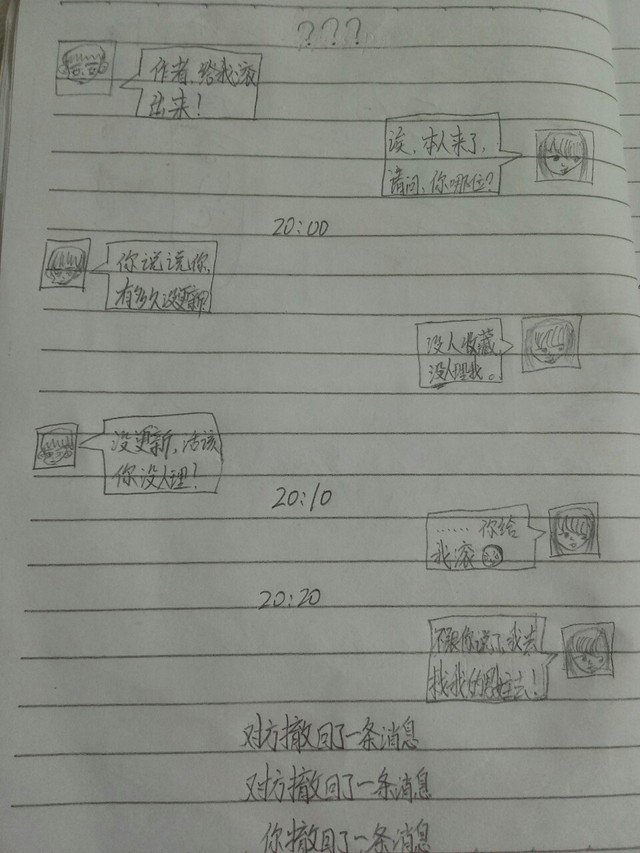 ???
作者,给我滚
出来!
诶,本人来了,
请问,你哪位?
20:00
你说说你,
有多久没更新
没人收藏,
没人理我。
没更新,活该
你没人理!
20:10
……你给
我滚
20:20
不跟你说了,我去
找我的男主去!
对方撤回了一条消息
对方撤回了一条消息
你撤回了一条消息